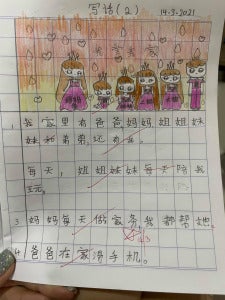 写话(2)
14-3-2021
我家里有爸爸妈妈姐姐妹
妹和弟弟还有我。
每天,姐姐妹妹每天陪我
玩。
3 妈妈每天做家务我都帮她。
4 爸爸在家滑手机。